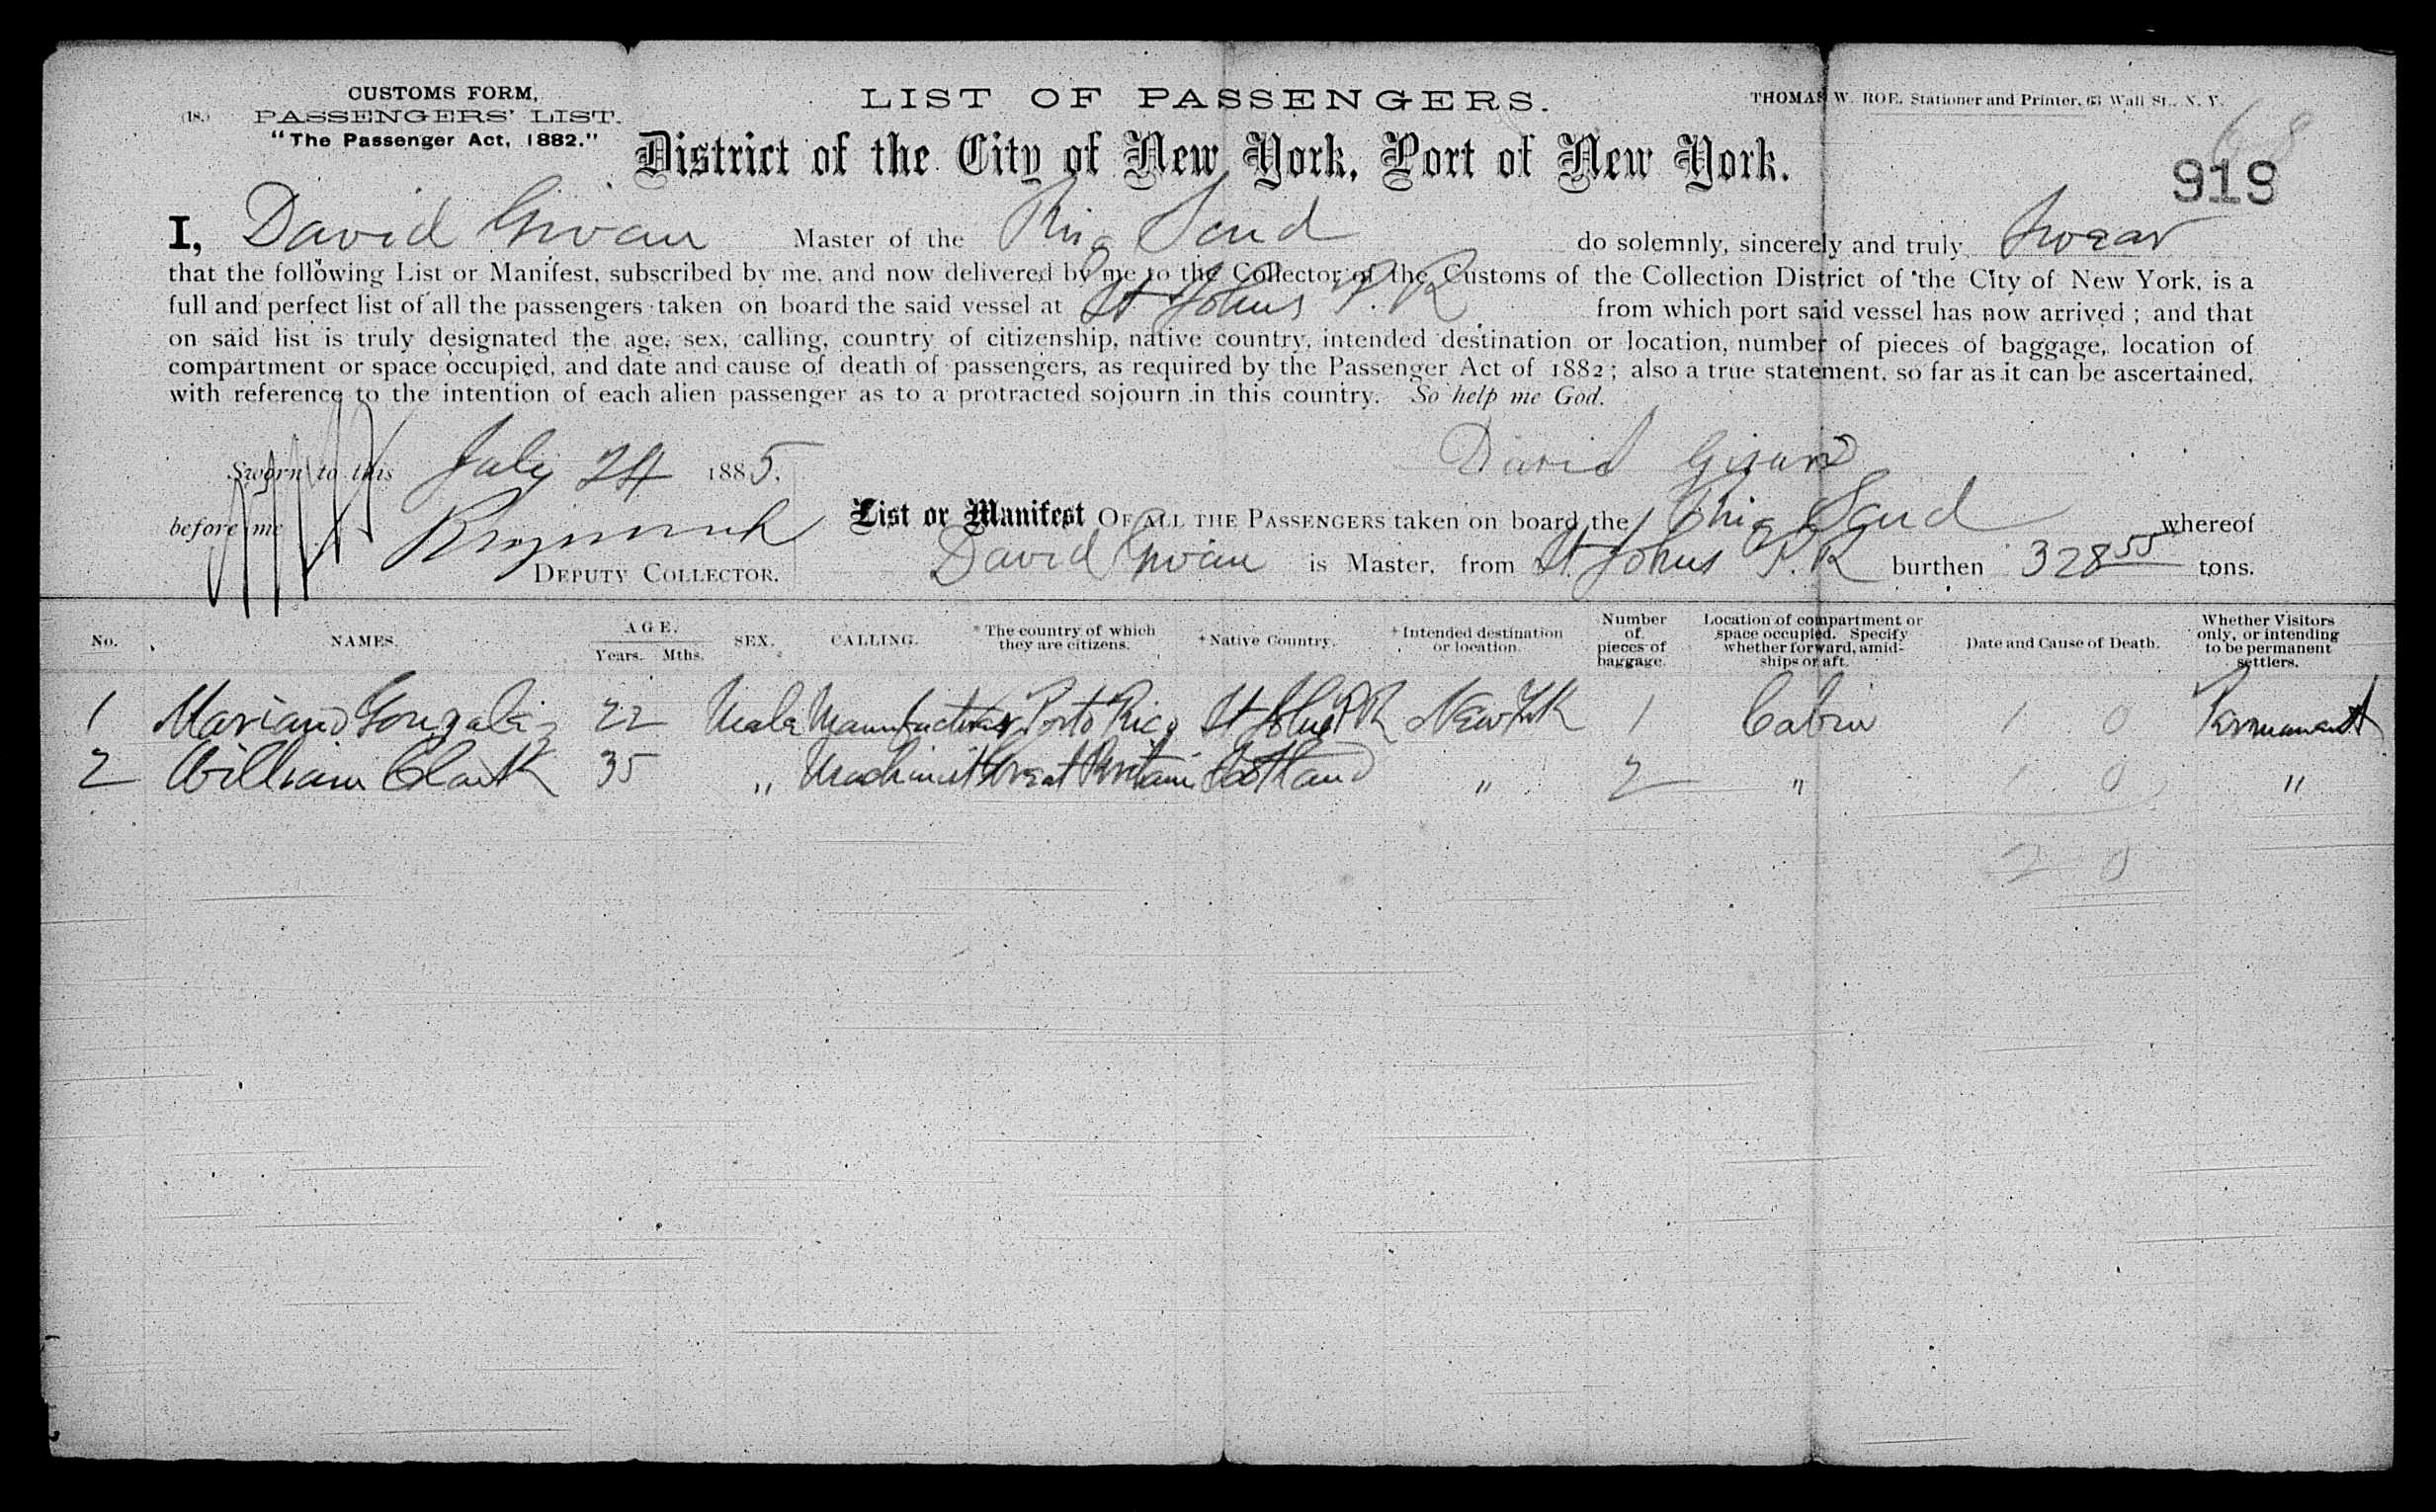 CUSTOMS FORM,
(18.) PASSENGERS' LIST.
"The Passenger Act, 1882."
LIST OF PASSENGERS.
THOMAS W. ROE, Stationer and Printer, 63 Wall St., N. Y.
68
District of the City of New York, Port of New York.
919
I, David Givan Master of the Brig Scud do solemnly, sincerely and truly Swear
that the following List or Manifest, subscribed by me, and now delivered by me to the Collector of the Customs of the Collection District of the City of New York, is a
full and perfect list of all the passengers taken on board the said vessel at St Johns P.R from which port said vessel has now arrived ; and that
on said list is truly designated the age, sex, calling, country of citizenship, native country, intended destination or location, number of pieces of baggage, location of
compartment or space occupied, and date and cause of death of passengers, as required by the Passenger Act of 1882 ; also a true statement, so far as it can be ascertained,
with reference to the intention of each alien passenger as to a protracted sojourn in this country. So help me God.
Sworn to this July 24 1885.
David Givan
before me
List or Manifest OF ALL THE PASSENGERS taken on board the Brig Scud whereof
DEPUTY COLLECTOR.
David Givan is Master, from St. Johns P.R burthen 328 55 tons.
No. NAMES. AGE. Years. Mths. SEX. CALLING. *The country of which they are citizens. +Native Country. +Intended destination or location. Number of pieces of baggage. Location of compartment or space occupied. Specify whether forward, amidships or aft. Date and Cause of Death. Whether Visitors only, or intending to be permanent settlers.
1 Mariano Gonzalez 22 Male Manufacturer Porto Rico St Johns PR New Yk 1 Cabin 1 0 Permanent
2 William Clark 35 " Machinist Great Britain Scotland " 2 " 1 0 "
2 0